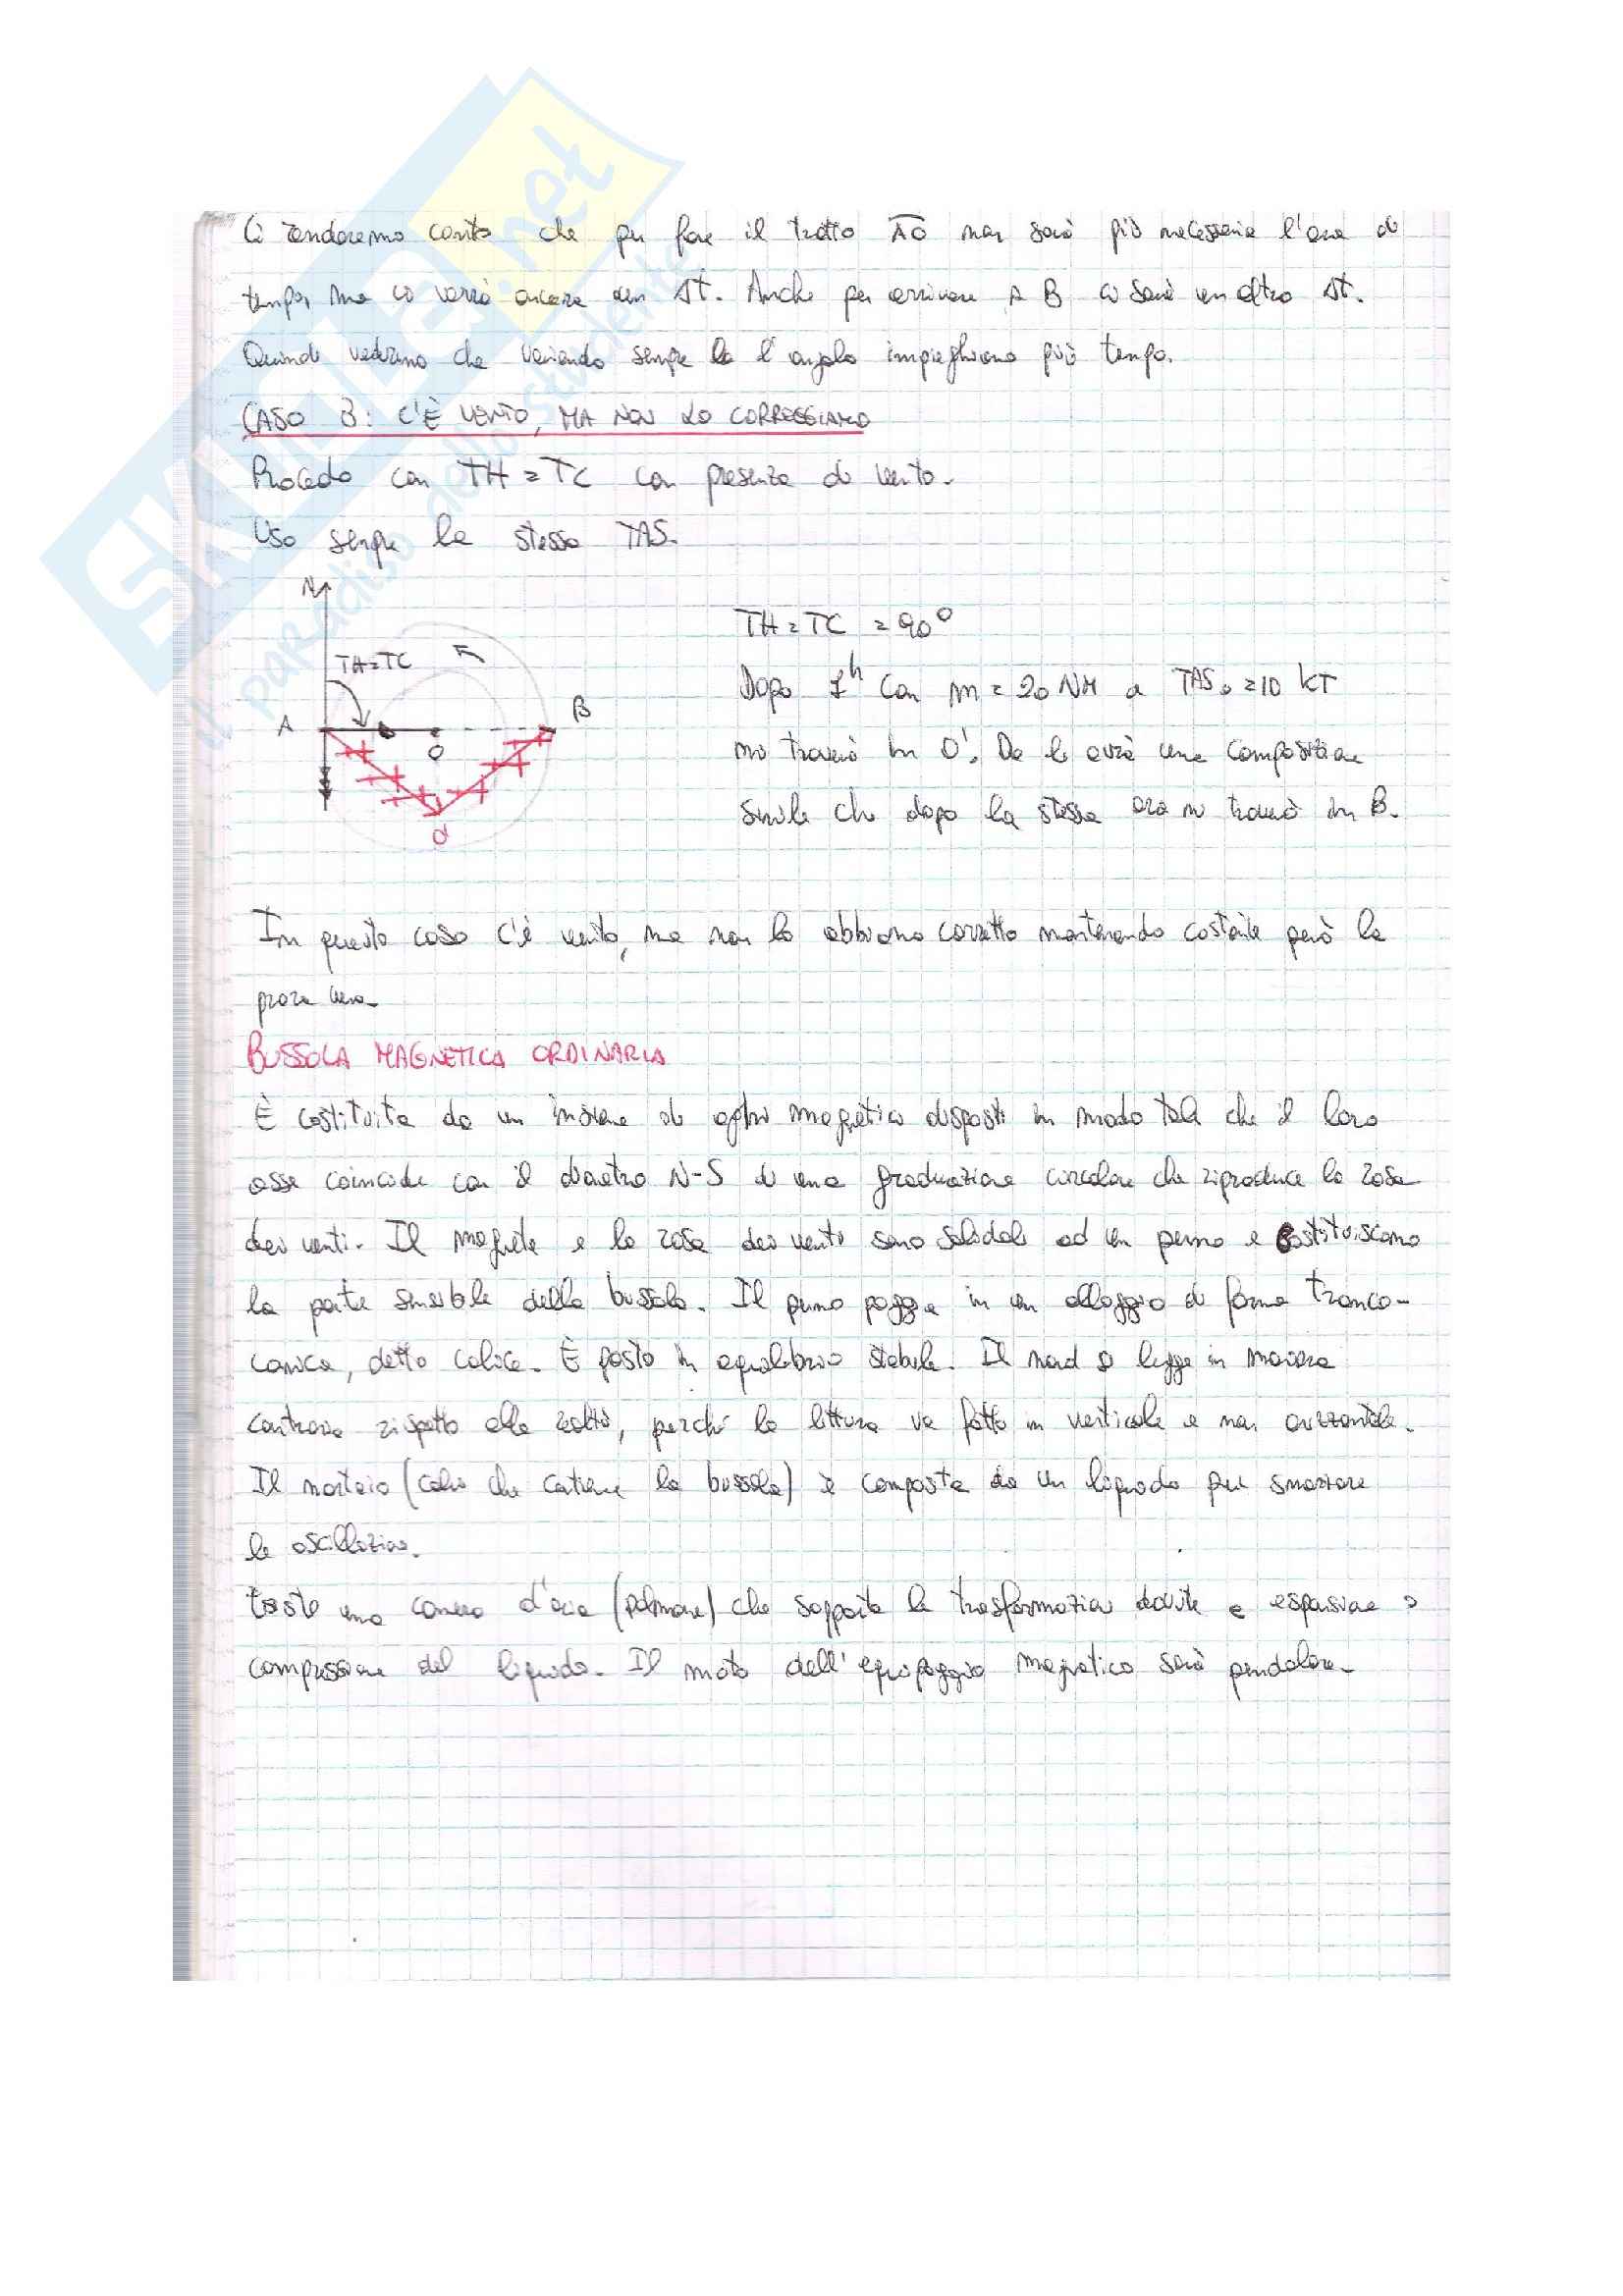 Ci renderemo conto che per fare il tratto AO non sarà più necessaria l'ora di
tempo, ma ci vorrà ancora un Δt. Anche per arrivare A B ci sarà un altro Δt.
Quindi vedremo che variando sempre l'angolo impieghiamo più tempo.
CASO 3: C'È VENTO, MA NON LO CORREGGIAMO
Procedo con TH = TC con presenza di vento.
Uso sempre la stessa TAS.
N
TH=TC
A
O
B
O'
TH = TC = 90°
Dopo 1h con m = 20 NM a TAS = 10 KT
mi troverò in O'. Da lì avrò una composizione
simile che dopo la stessa ora mi troverò in B.
In questo caso c'è vento, ma non lo abbiamo corretto mantenendo costante però la
prora vera.
BUSSOLA MAGNETICA ORDINARIA
È costituita da un insieme di aghi magnetici disposti in modo tale che il loro
asse coincide con il diametro N-S di una graduazione circolare che riproduce la rosa
dei venti. Il magnete e la rosa dei venti sono solidali ad un perno e costituiscono
la parte sensibile della bussola. Il perno poggia in un alloggio di forma tronco-
conica, detto calice. È posto in equilibrio stabile. Il nord si legge in maniera
contraria rispetto alla realtà, perché la lettura va fatta in verticale e non orizzontale.
Il mortaio (colui che contiene la bussola) è composta da un liquido per smorzare
le oscillazioni.
una camera d'aria (polmone) che sopporta le trasformazioni dovute a espansione o
compressione del liquido. Il moto dell'equipaggio magnetico sarà pendolare.
SKUOLA.net
il paradiso dello studente